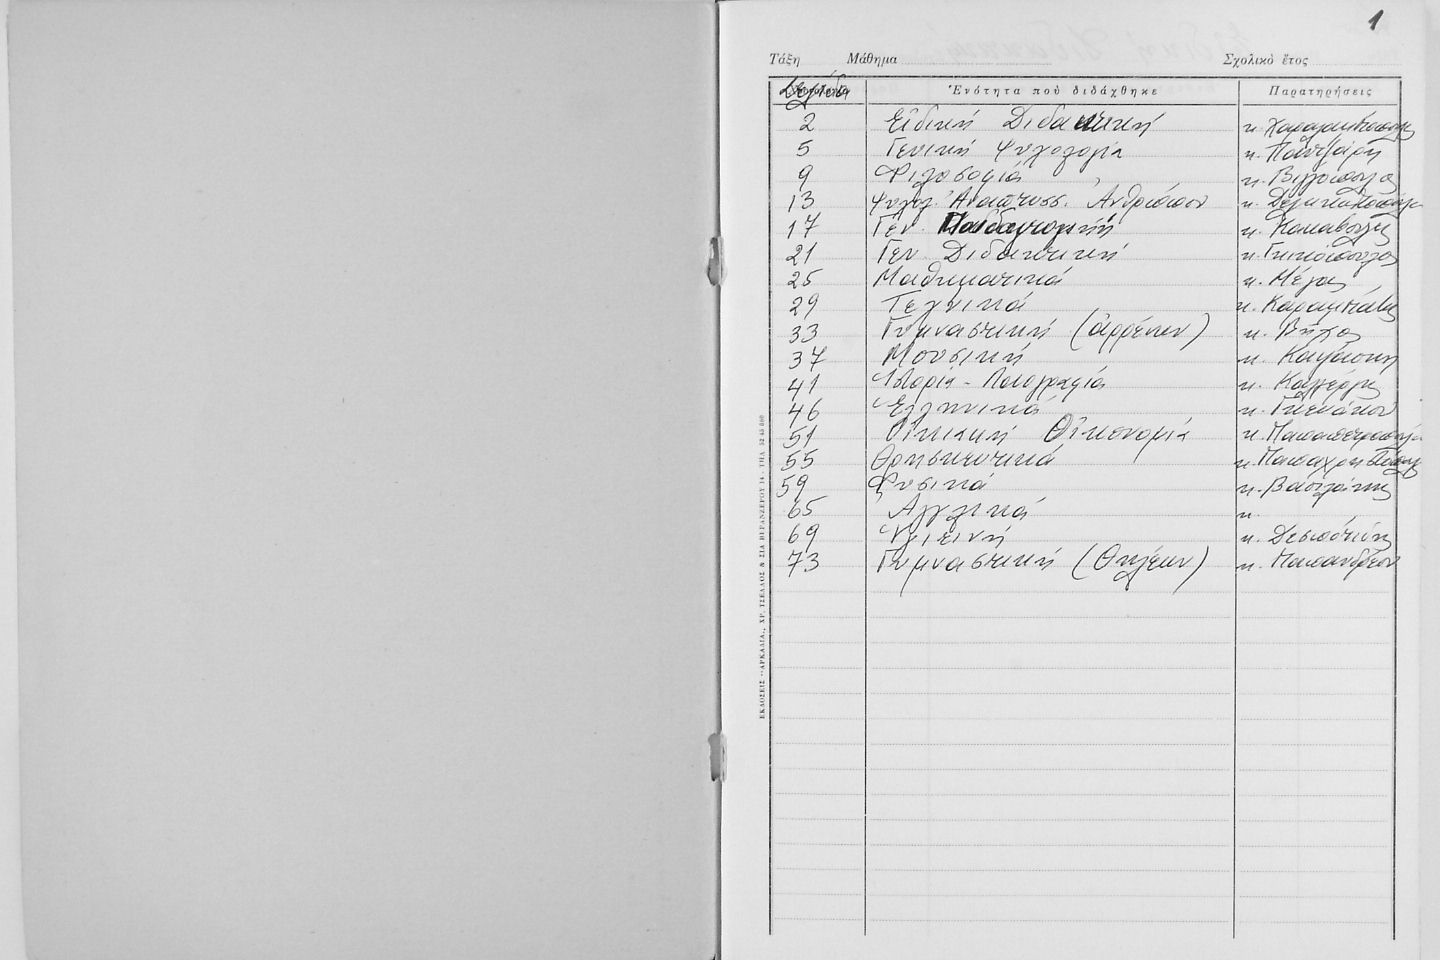 1
Τάξη Μάθημα Σχολικὸ ἔτος
Σελίδα Ἑνότητα ποὺ διδάχθηκε Παρατηρήσεις
2 Εἰδική Διδακτική κ. Χαραλαμπόπουλος
5 Γενική Ψυχολογία κ. Παντζάρη
9 Φιλοσοφία κ.
13 Ψυχολ. Ἀναπτυσσ. Ἀνθρώπου κ.
17 Γεν. Παιδαγωγική κ. Κακαβούλης
21 Γεν. Διδακτική κ. Γκικόπουλος
25 Μαθηματικά κ. Μέγας
29 Τεχνικά κ.
33 Γυμναστική (ἀρρένων) κ. Βῆχος
37 Μουσική κ.
41 Ἱστορία - Γεωγραφία κ. Καλλέργης
46 Ἑλληνικά κ.
51 Οἰκιακή Οἰκονομία κ. Παπαπετροπούλου
55 Θρησκευτικά κ.
59 Φυσικά κ. Βασιλάκης
65 Ἀγγλικά κ.
69 Ὑγιεινή κ. Δεσποτίδης
73 Γυμναστική (Θηλέων) κ. Παπανδρέου
ΕΚΔΟΣΕΙΣ «ΑΡΚΑΔΙΑ», ΧΡ. ΤΣΕΛΛΟΣ & ΣΙΑ ΒΕΡΑΝΖΕΡΟΥ 14 - ΤΗΛ.